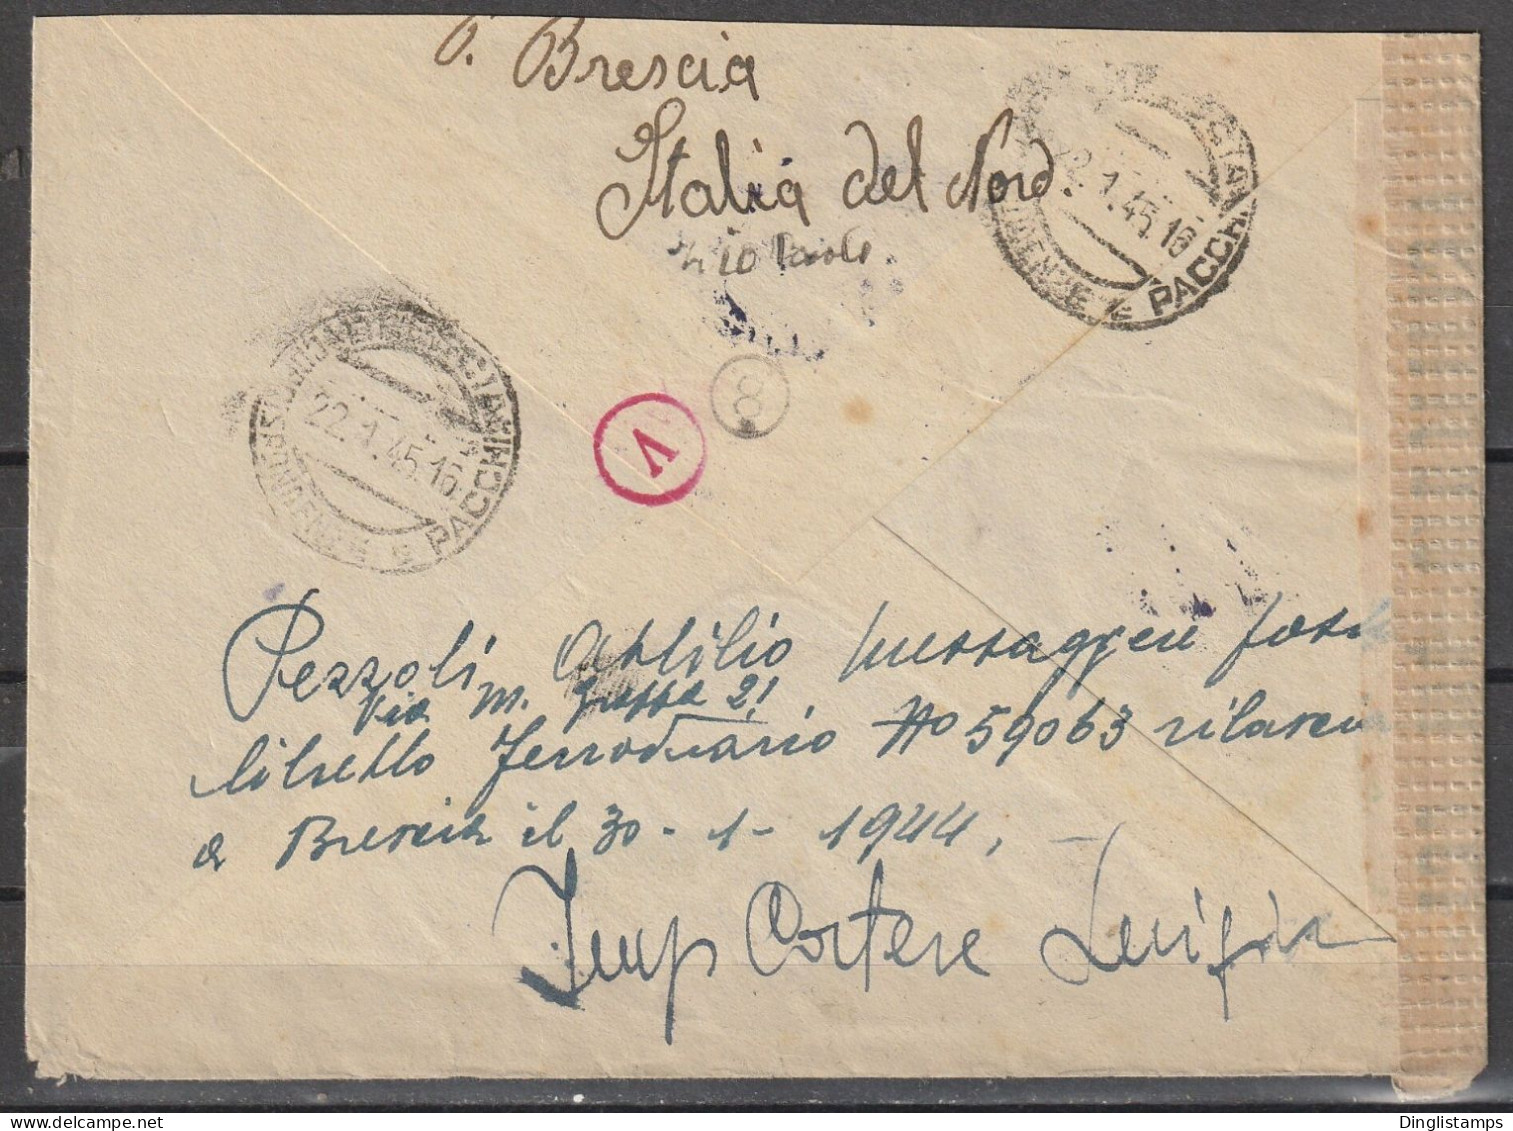 P. Brescia
Italia del Nord.
22.1.45.16
PACCHI
22.1.45.16
CORRISPONDENZE e PACCHI
8
V
Pezzoli Attilio Messaggere
Via M. Grappa 21
libretto Ferroviario No 59063
a Brescia il 30-1-1944,
Imp Cortese Luigia
Dinglistamps